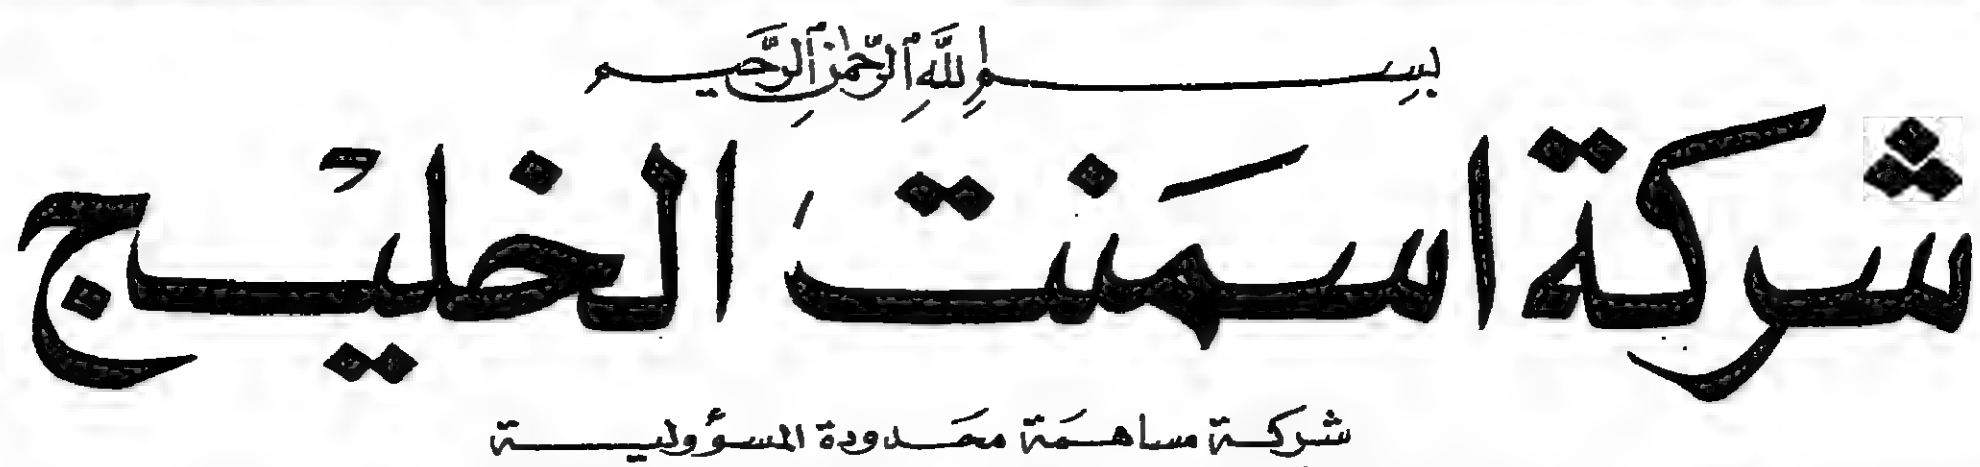 بسم الله الرحمن الرحيم
شركة اسمنت الخليج
شركة مساهمة محدودة المسؤولية